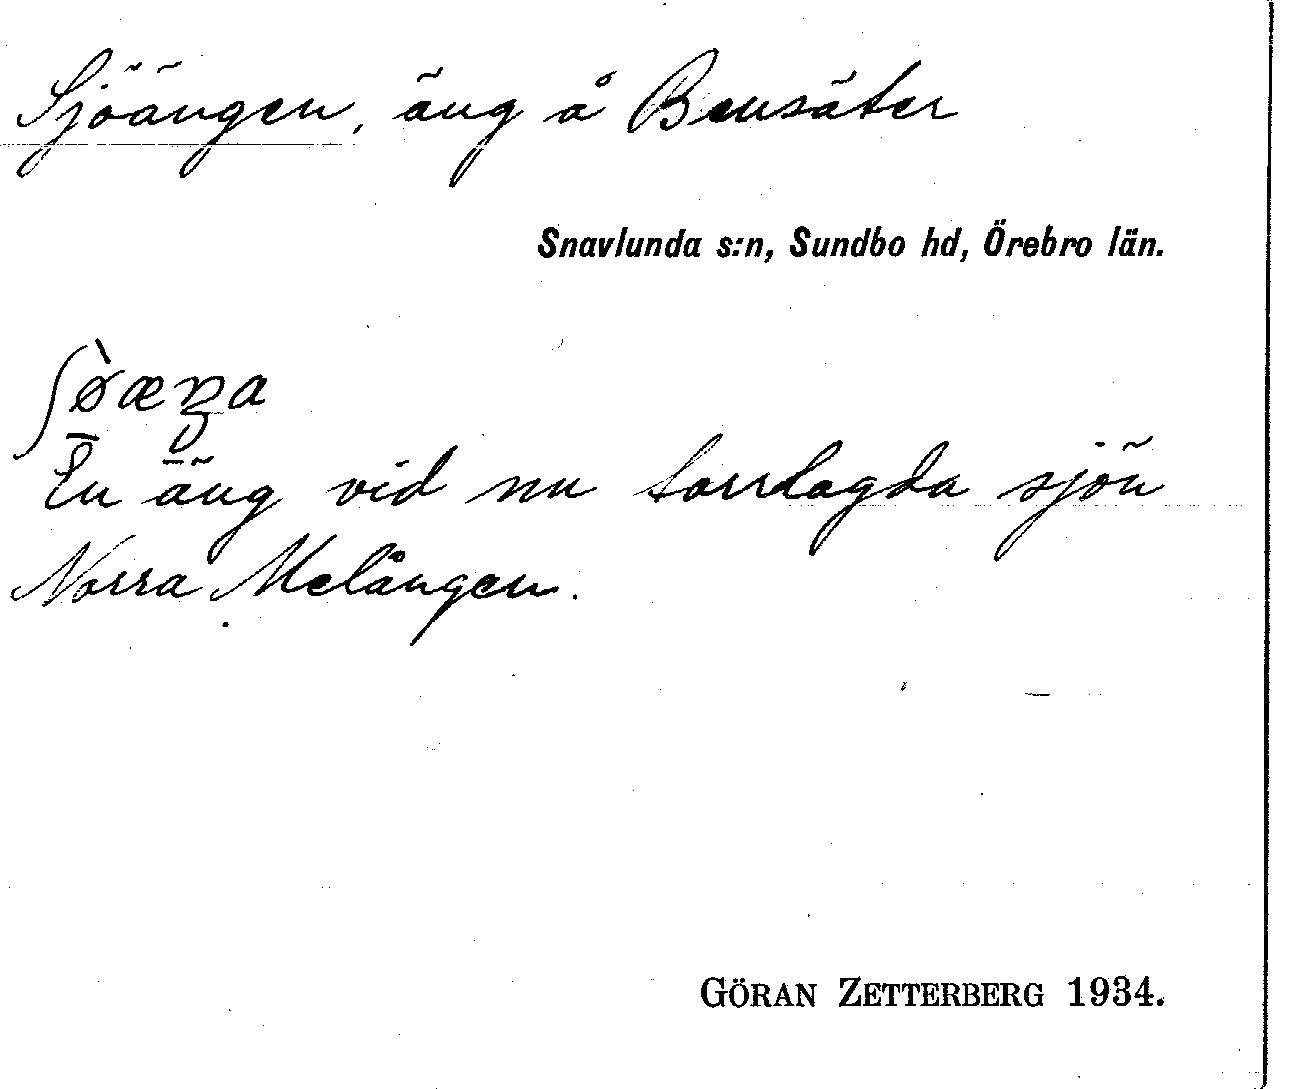 Sjöängen, äng å Bensäter
Snavlunda s:n, Sundbo hd, Örebro län.
En äng vid nu torrlagda sjön
Norra Melången.
GÖRAN ZETTERBERG 1934.